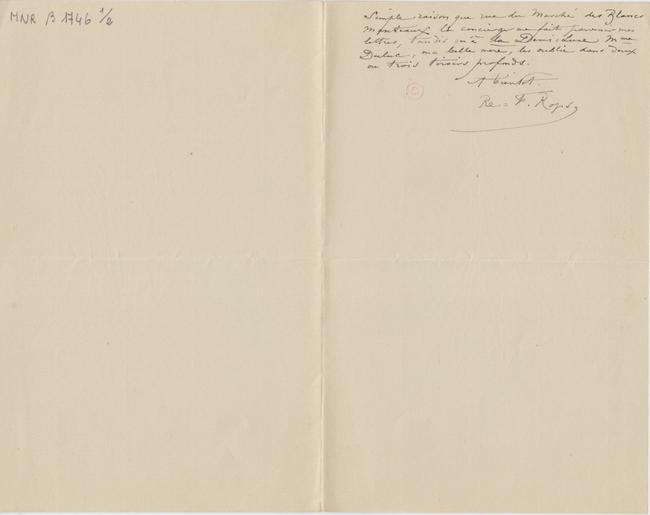 MNR B 1746 1/2
Simple raison que rue du Marché des Blancs
Manteaux, le concierge me fait parvenir mes
lettres, tandis qu'à la Demi-Lune Mme
Duluc, ma belle mère, les oublie dans deux
ou trois tiroirs profonds.
A Bientôt.
F. Rops